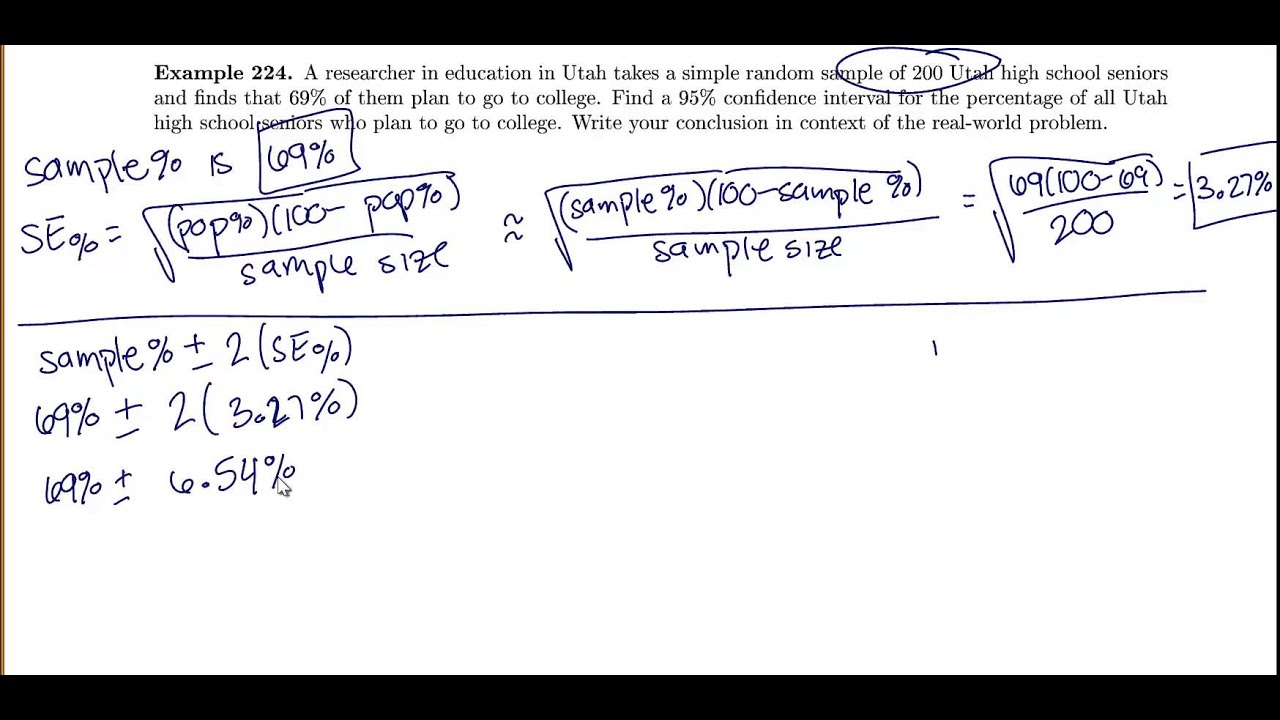 Example 224. A researcher in education in Utah takes a simple random sample of 200 Utah high school seniors
and finds that 69% of them plan to go to college. Find a 95% confidence interval for the percentage of all Utah
high school seniors who plan to go to college. Write your conclusion in context of the real-world problem.
sample% is 69%
SE% = √((pop%)(100 - pop%) / sample size) ≈ √((sample%)(100-sample%) / sample size) = √(69(100-69) / 200) = 3.27%
sample% ± 2(SE%)
69% ± 2(3.27%)
69% ± 6.54%